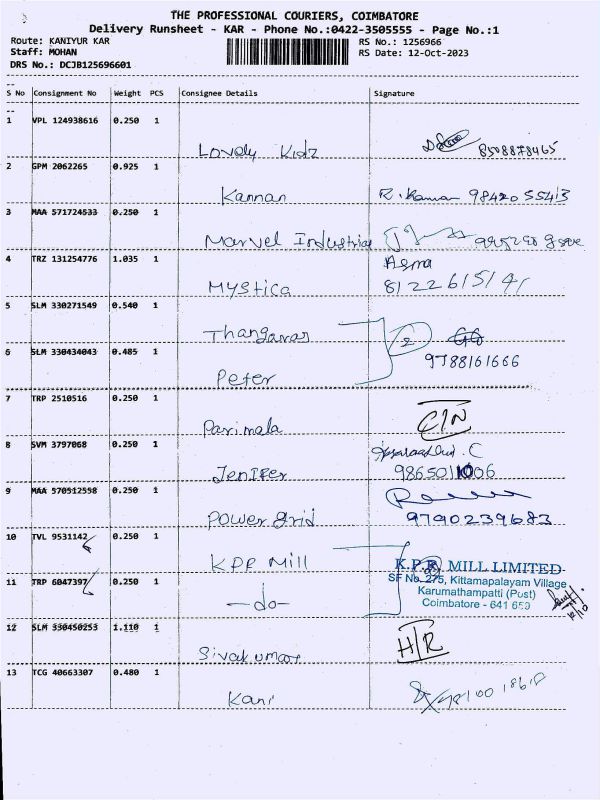 THE PROFESSIONAL COURIERS, COIMBATORE
Delivery Runsheet - KAR - Phone No.:0422-3505555 - Page No.:1
Route: KANIYUR KAR
RS No.: 1256966
Staff: MOHAN
RS Date: 12-Oct-2023
DRS No.: DCJB125696601
S No Consignment No Weight PCS Consignee Details Signature
1 VPL 124938616 0.250 1
Lovely Kidz 8508878465
2 GPM 2062265 0.925 1
Kannan R. Kannan 9842055413
3 MAA 571724533 0.250 1
Marvel Industrial
4 TRZ 131254776 1.035 1
Mystica 8122615141
5 SLM 330271549 0.540 1
2
6 SLM 330434043 0.485 1
9788161666
Peter
7 TRP 2510516 0.250 1
Parimala C/N
8 SVM 3797068 0.250 1
Jenifer 9865011006
9 MAA 570512558 0.250 1
Power grid 9790239683
10 TVL 9531142 0.250 1
KPR Mill K.P.R MILL LIMITED
SF No. 275, Kittamapalayam Village
11 TRP 6047397 0.250 1
Karumathampatti (Post)
-do- Coimbatore - 641 659
12 SLM 330450253 1.110 1
Sivakumar H/R
13 TCG 40663307 0.480 1
Kani